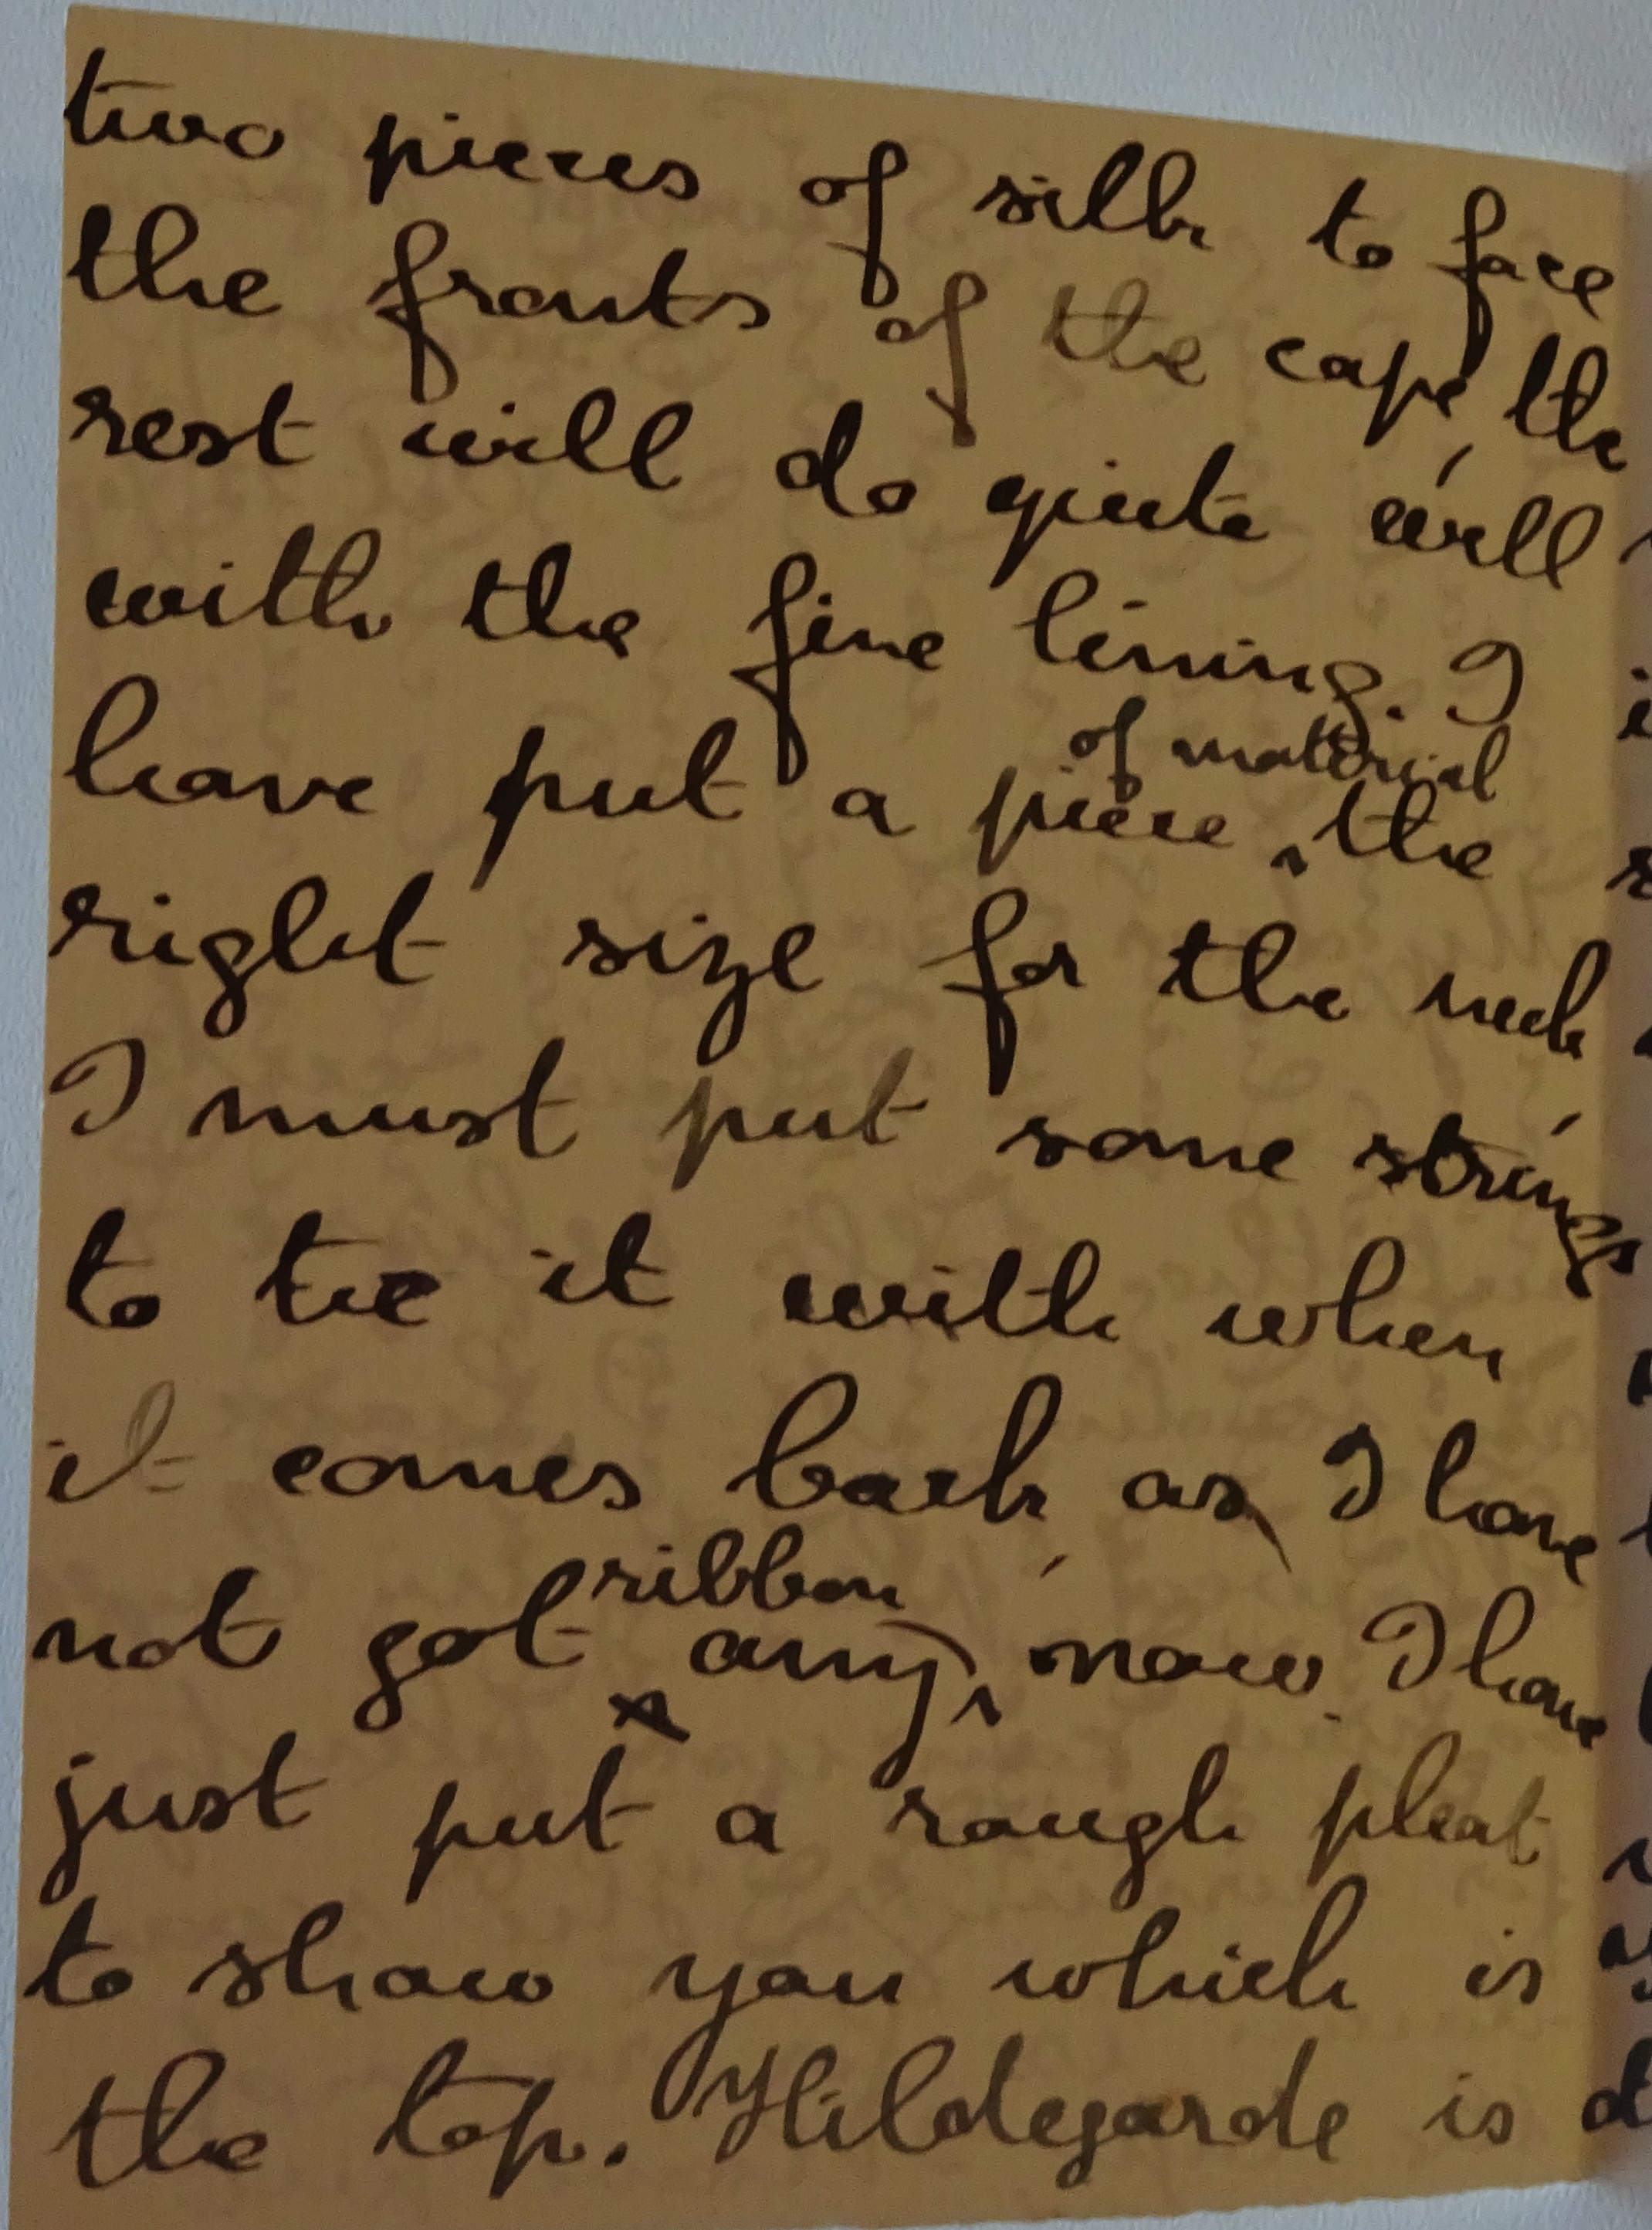 two pieces of silk to face
the fronts of the cape, the
rest will do quite well
with the fine lining. I
of material
have put a piece ‸ the
right size for the neck
I must put some strings
to tie it with when
it comes back, as I have
ribbon
not got any ‸ now. I have
just put a rough pleat
to show you which is
the top. Hildegarde is